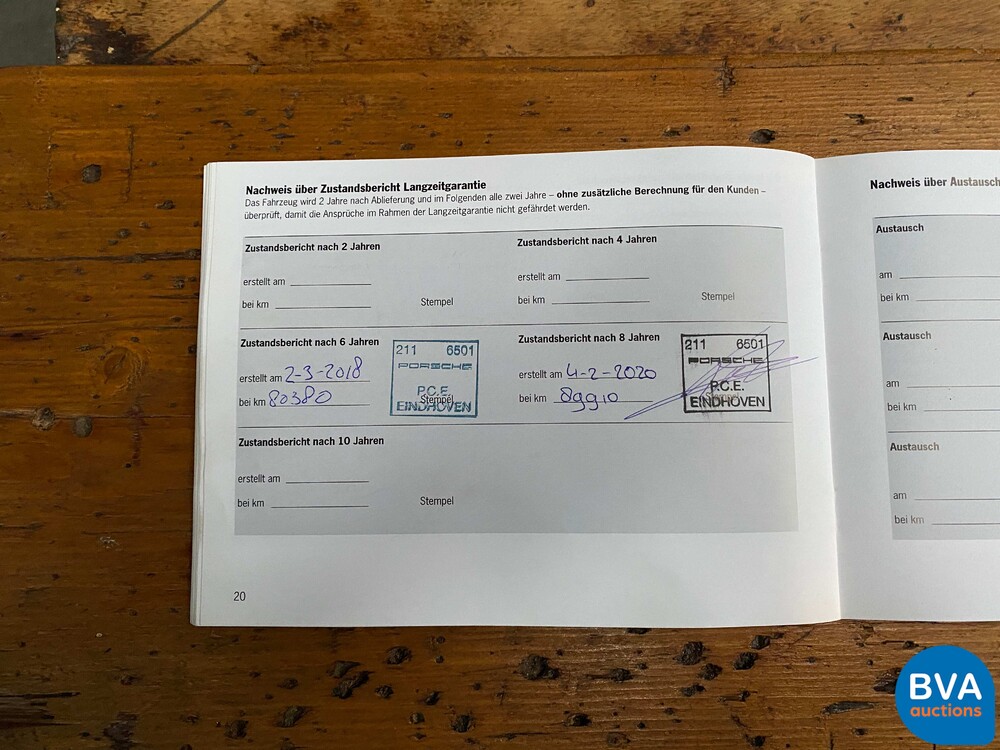 Nachweis über Zustandsbericht Langzeitgarantie
Das Fahrzeug wird 2 Jahre nach Ablieferung und im Folgenden alle zwei Jahre – ohne zusätzliche Berechnung für den Kunden –
überprüft, damit die Ansprüche im Rahmen der Langzeitgarantie nicht gefährdet werden.
Zustandsbericht nach 2 Jahren
erstellt am
bei km
Stempel
Zustandsbericht nach 4 Jahren
erstellt am
bei km
Stempel
Zustandsbericht nach 6 Jahren
erstellt am 2-3-2018
bei km 80380
Stempel
211 6501
PORSCHE
P.C.E.
EINDHOVEN
Zustandsbericht nach 8 Jahren
erstellt am 4-2-2020
bei km 89910
211 6501
PORSCHE
P.C.E.
EINDHOVEN
Zustandsbericht nach 10 Jahren
erstellt am
bei km
Stempel
20
Nachweis über Austausch
Austausch
am
bei km
Austausch
am
bei km
Austausch
am
bei km
BVA
auctions